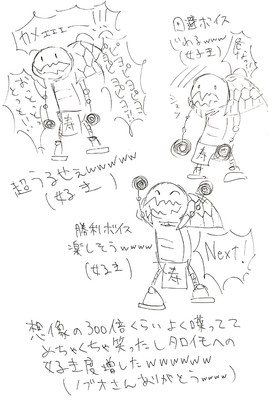 カメェェェー!!!
超うるせぇwwwww
(好き)
回避ボイス
じわるwww
(好き)
寿
勝利ボイス
楽しそうwwww
(好き)
Next!
寿
想像の300倍くらいよく喋ってて
めちゃくちゃ笑ったしタロイモへの
好き度増したwwwwww
(ノブオさんありがとうwwww)